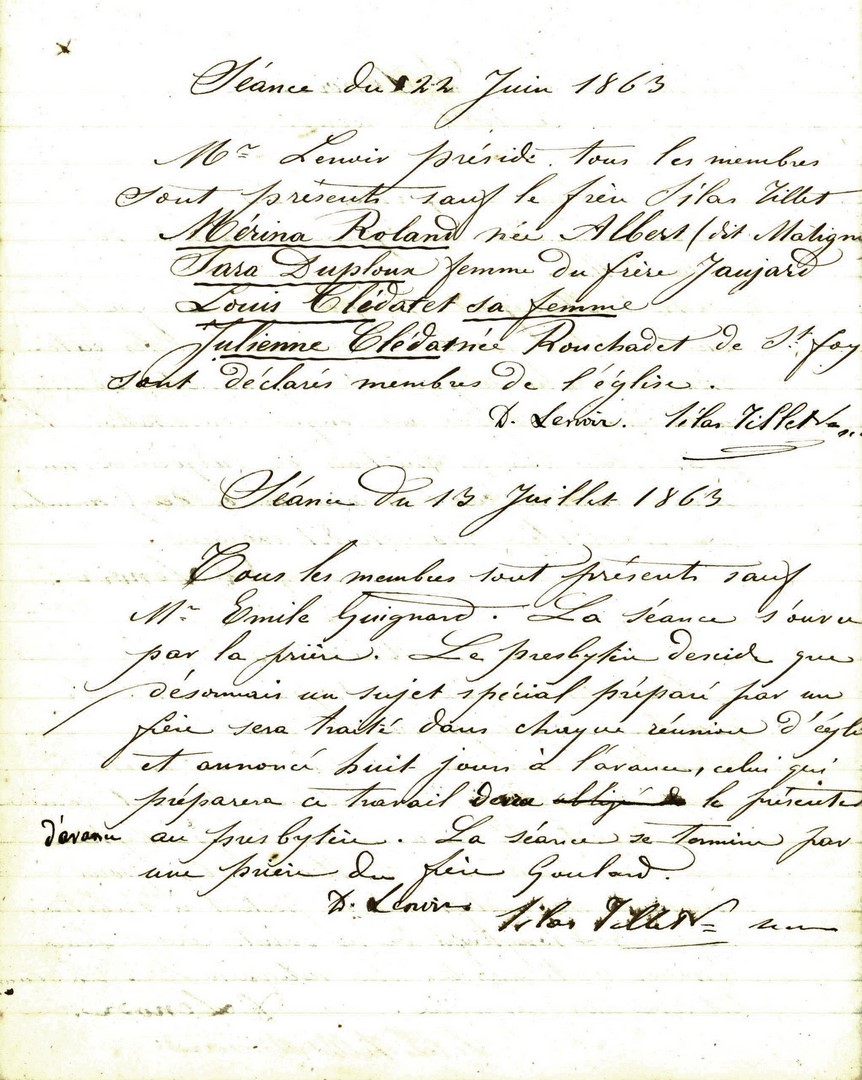 Séance du 22 Juin 1863
Mr Lenoir préside. tous les membres
sont présents sauf le frère Silas Tillet
Mérina Roland née Albert (dit Matigne
Sara Duploux femme du frère Jaujard
Louis Clédat et sa femme
Julienne Clédat née Rouchadet de St. foy
sont déclarés membres de l'église.
D. Lenoir. Silas Tillet
Séance du 13 Juillet 1863
Tous les membres sont présents sauf
Mr Emile Guignard. La séance s'ouvre
par la prière. Le presbytère descide que
désormais un sujet spécial préparé par un
frère sera traité dans chaque réunion d'égli
et annoncé huit jours à l'avance, celui qui
préparera ce travail devra obligé de le présenter
d'avance au presbytère. La séance se termine par
une prière du frère Goulard.
D. Lenoir. Silas Tillet